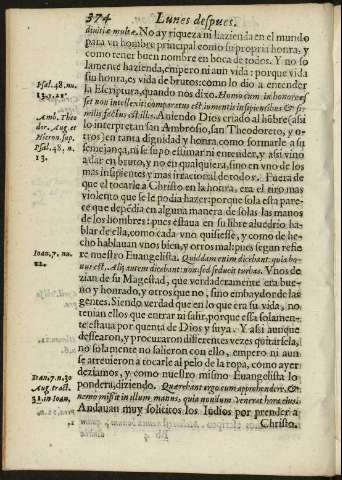 374 Lunes despues.
diuitiæ multæ. No ay riqueza ni hazienda en el mundo
para vn hombre principal como su propria honra, y
como tener buen nombre en boca de todos. Y no so
lamente hazienda, empero ni aun vida: porque vida
sin honra, es vida de brutos: como lo dio a entender
la Escriptura, quando nos dixo. Homo cum in honore es
set non intellexit: comparatus est iumentis insipientibus & si
milis factus est illis. Auiendo Dios criado al hõbre (assi
lo interpretan san Ambrosio, san Theodoreto, y o-
tros) en tanta dignidad y honra, como formarle a su
semejança, ni se supo estimar ni entender, y assi vino
a dar en bruto, y no en qualquiera, sino en vno de los
mas insipientes y mas irracional de todos. Fuera de
que el tocarle a Christo en la honra, era el tiro mas
violento que se le podia hazer: porque sola esta pare-
ce que depẽdia en alguna manera de solas las manos
de los hombres: pues estaua en su libre aluedrio ha-
blar de ella, como cada vno quisiesse, y como de he-
cho hablauan vnos bien, y otros mal: pues segun refie
re nuestro Euangelista. Quidam enim dicebant: quia bo
nus est. Alij autem dicebant: non sed seducit turbas. Vnos de-
zian de su Magestad, que verdaderamente era bue-
no y honrado, y otros que no, sino embaydor de las
gentes. Siendo verdad que en lo que era su vida, no
tenian ellos que entrar ni salir, porque essa solamen-
te estaua por quenta de Dios y suya. Y assi aunque
dessearon, y procuraron differentes vezes quitarsela,
no solamente no salieron con ello, empero ni aun
se atreuieron a tocarle al pelo de la ropa, como ayer
deziamos, y como nuestro mismo Euangelista lo
pondera, diziendo. Quærebant ergo eum apprehendere, &
nemo missit in illum manus, quia nondum venerat hora eius.
Andauan muy solicitos los Iudios por prender a
Christo.
Psal. 48. nu.
13. & 21.
Amb. Theo
dor. Aug. et
Hieron. sup.
Psal. 48. n.
13.
Ioan. 7. nu.
12.
Ioan. 7. n. 30
Aug. tract.
31. in Ioan.